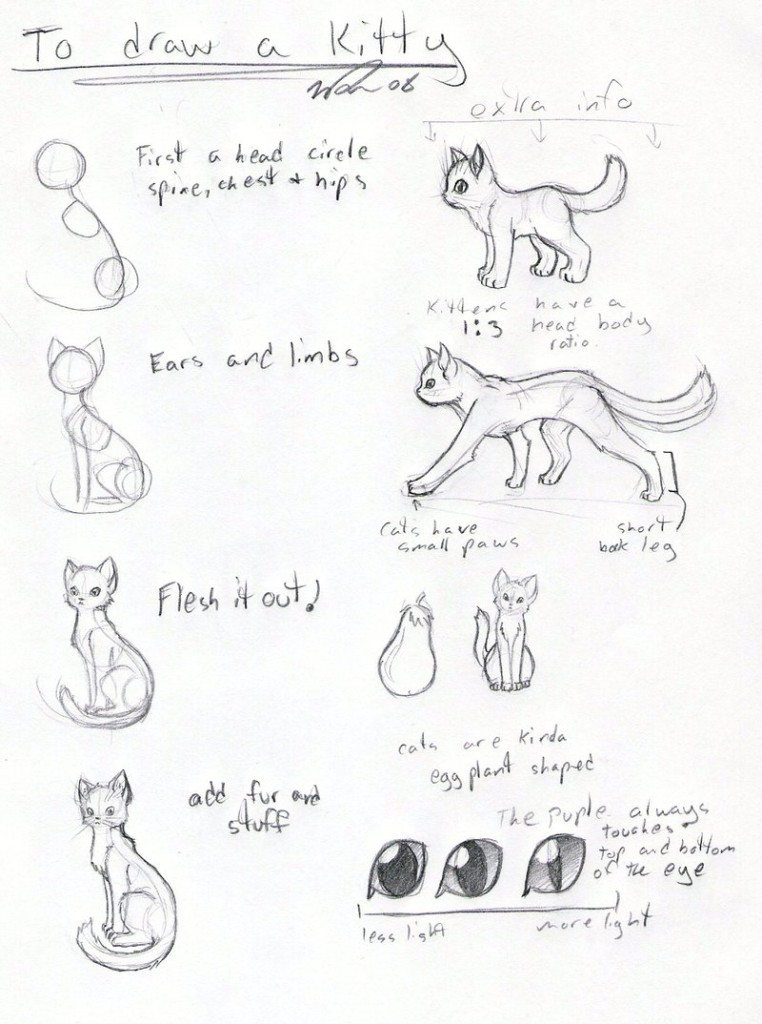 To draw a Kitty
08
First a head circle
spine, chest + hips
Ears and limbs
Flesh it out!
add fur and
stuff
extra info
Kittens have a
1:3 head body
ratio.
cats have
small paws
short
back leg
cats are kinda
eggplant shaped
The puple always
touches
top and bottom
of the eye
less light
more light